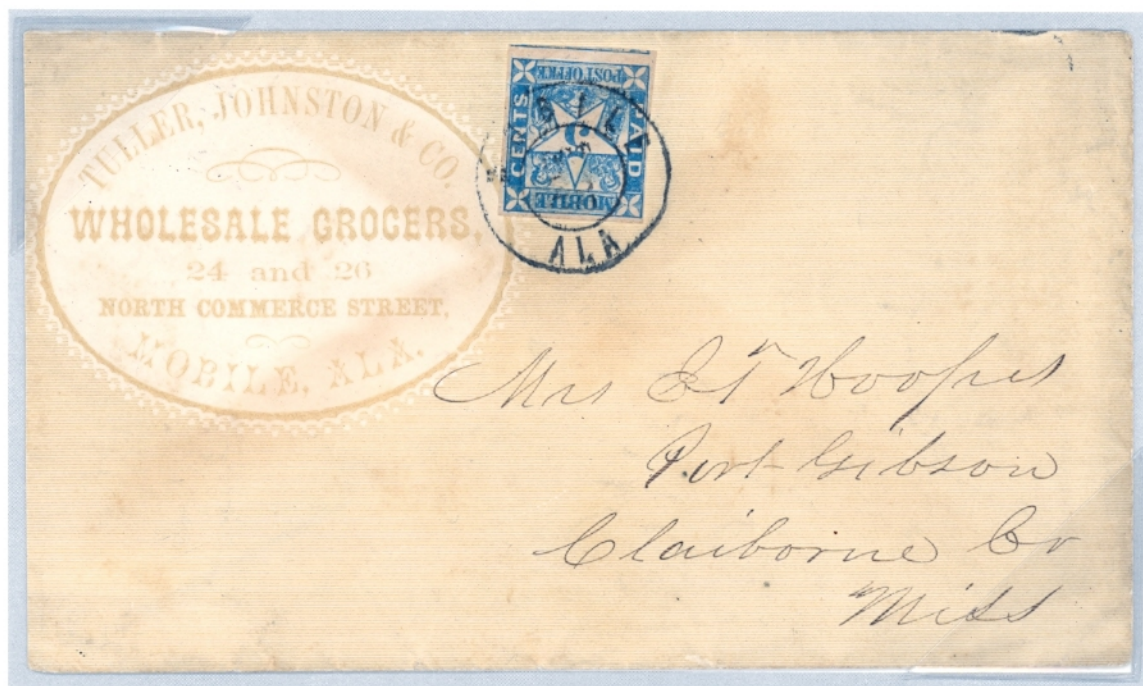 TULLER, JOHNSTON & CO.
WHOLESALE GROCERS,
24 and 26
NORTH COMMERCE STREET,
MOBILE, ALA.
POST OFFICE
PAID
CENTS
5
MOBILE
ALA
Mrs Hoopes
Port Gibson
Claiborne Co
Miss